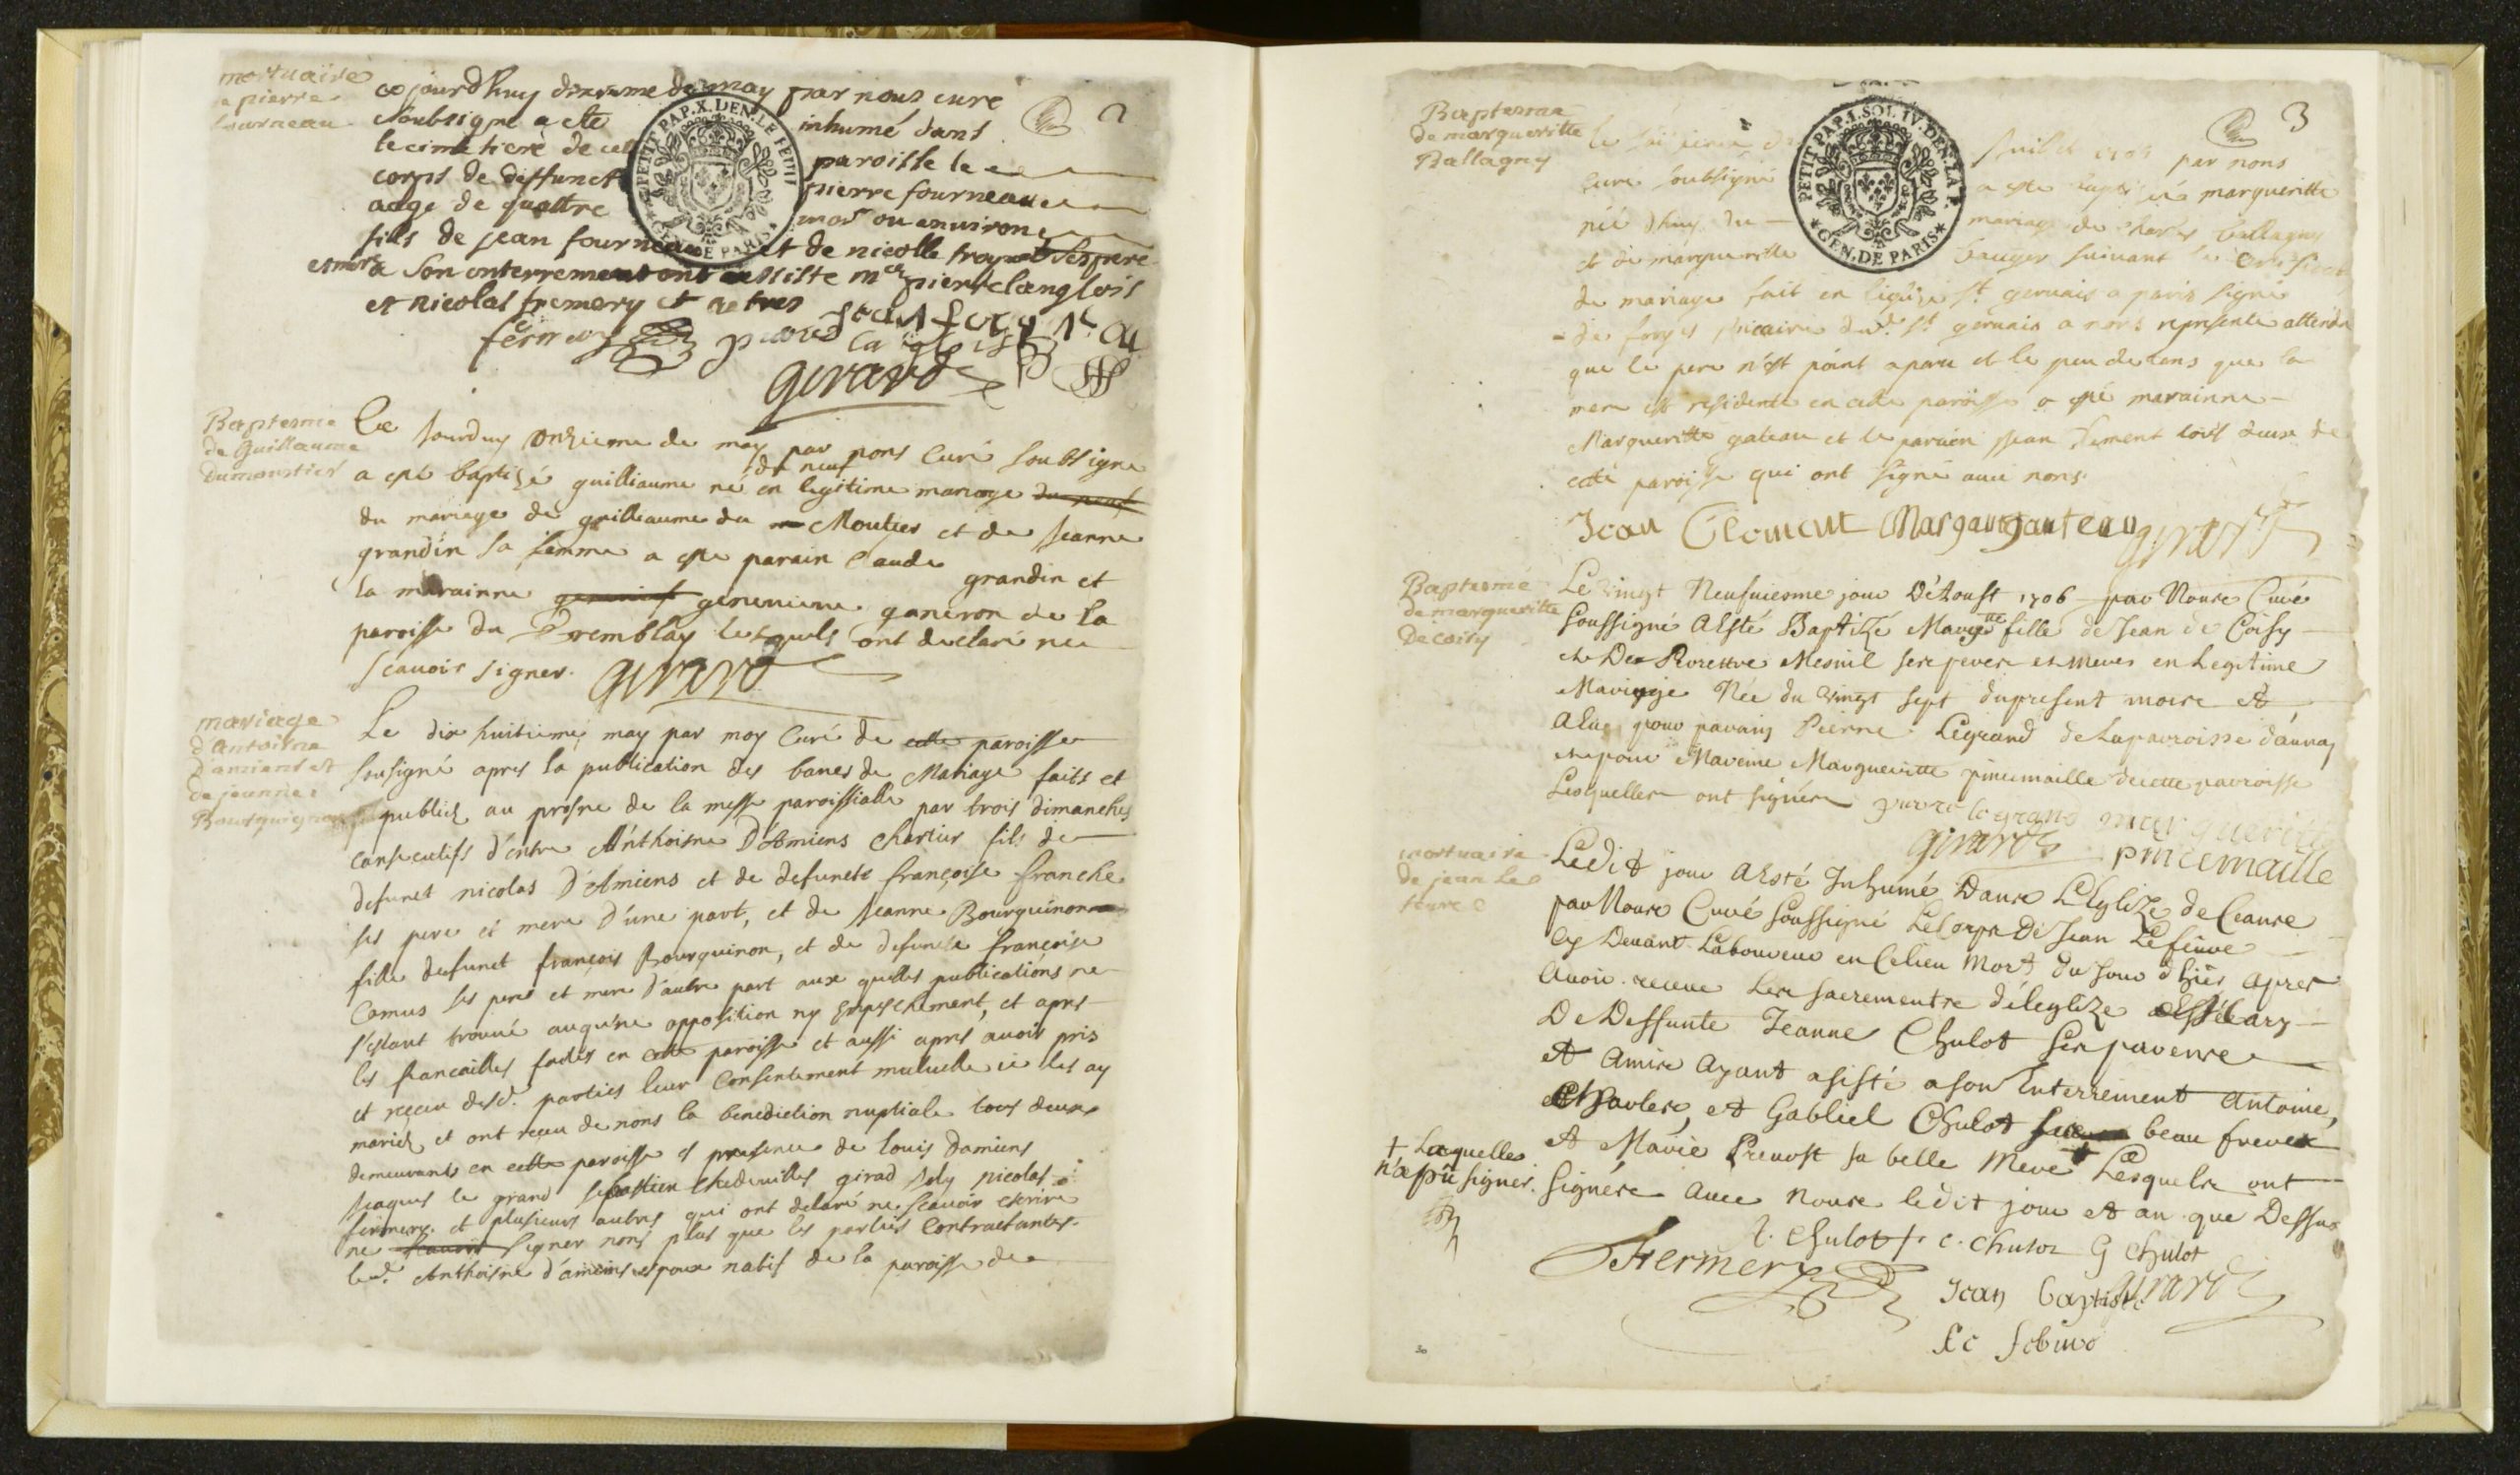 mortuaire
de pierre
fourneau
ce jourdhuy dixieme de may par nous curé
soubsigné a eté inhumé dans
le cimetiere de cette paroisse le
corps de deffunct pierre fourneau
aage de quattre mois ou environ
fils de jean fourneau et de nicolle ses pere
et mere a son enterrement ont assisté me pierre langlois
et nicolas fremery et autres
jean
pierre langlois
girard
2
PETIT PAP. X. DEN. LE FEUIL
GEN. DE PARIS
Baptesme
de Guillaume
dumoustier
Ce jourduy onzieme de may par nous Curé soubsigné
a esté baptizé guilliaume né du neuf en legitime mariage du neuf
du mariage de guilliaume du Moutier et de Jeanne
grandin sa femme a esté parain Claude grandin et
la marainne genevieve ganeron de la
paroisse du Tremblay lesquels ont declaré ne
scavoir signer. girard
mariage
d'antoisne
d'amiens et
de jeanne
Bourguignon
Le dix huitieme may par moy Curé de cette paroisse
sousigné apres la publication des bancs de Mariage faits et
publiez au prosne de la messe paroissialle par trois dimanches
consecutifs d'entre Anthoisne D'Amiens Chartier fils de
defunct nicolas D'Amiens et de defuncte françoise franche
ses pere et mere d'une part, et de Jeanne Bourguinon
fille defunct françois Bourguinon, et de defuncte françoise
Camus ses pere et mere d'autre part aux quelles publications ne
s'estant trouvé auqu'ne opposition ny empeschement, et apres
les fiancailles faites en cette paroisse et aussi apres avoir pris
et reçeu desd. parties leur Consentement mutuelle je les ay
mariez et ont reçeu de nous la benediction nuptiale tous deux
demeurants en cette paroisse et presence de louis Damiens
Jaques le grand sebastien chedeuilles girad Joly nicolas
firmery et plusieurs autres qui ont delaré ne scavoir escrire
ne scavoir signer nons plus que les parties Contractantes.
led. Anthoisne d'amiens espoux natif de la paroisse de
3
PETIT PAP. 1. SOL. IV. DEN. LA F.
GEN. DE PARIS
Baptesme
de margueritte
Ballagny
le juillet par nous
Curé soubsigné a esté baptisée margueritte
née d'huy du mariage de Charles Ballagny
et de margueritte suivant le
de mariage fait en l'eglize st. gervais a paris signé
de vicaire dud. st. gervais a nous representé attendu
que le pere n'est point aparu et le peu de tems que la
mere est residente en cette paroisse a esté marainne
Margueritte gateau et le parain Jean Clement tous deux de
cette paroisse qui ont signé avec nous.
Jean Clement Margauteau girard
Baptesme
de margueritte
De coisy
Le vingt Neufuiesme jour D'Aoust 1706 par Nous Curé
soussigné A Esté Baptizé Margtte fille de Jean de Coisy
et De Mesnil ses pere et mere en Legitime
Mariage Née du vingt sept du present mois et
A Eue pour parain Pierre Legrand de La parroisse d'aunay
et pour Mareine Margueritte pincemaille de cette parroisse
Lesquelles ont signés pierre le grand marguerite
girard pincemaille
mortuaire
de jean Le
feure
Ledit jour A Esté Inhumé Dans L'Eglize de Ceans
par Nous Curé soussigné Le Corps De Jean Lefeuve
cy Devant Laboureur en Ce lieu Mort du Jour d'hier apres
Avoir receue Les sacrements de l'eglize
De Deffunte Jeanne Chulot ses parens
et Amis Ayant asisté a son Enterrement Antoine,
Charles, et Gabliel Chulot beau freres
et Marie Prevost sa belle Mere + Lesquels ont
signés avec nous ledit jour et an que Dessus
+ Laquelle
n'a pû signer.
Chulot c. chulot G chulot
Fermery
Jean Baptiste girard
le febuve